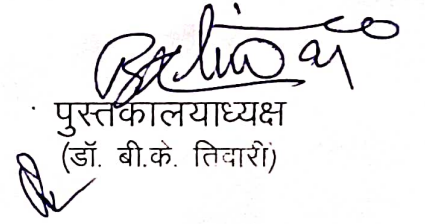 पुस्तकालयाध्यक्ष
(डॉ. बी.के. तिवारी)